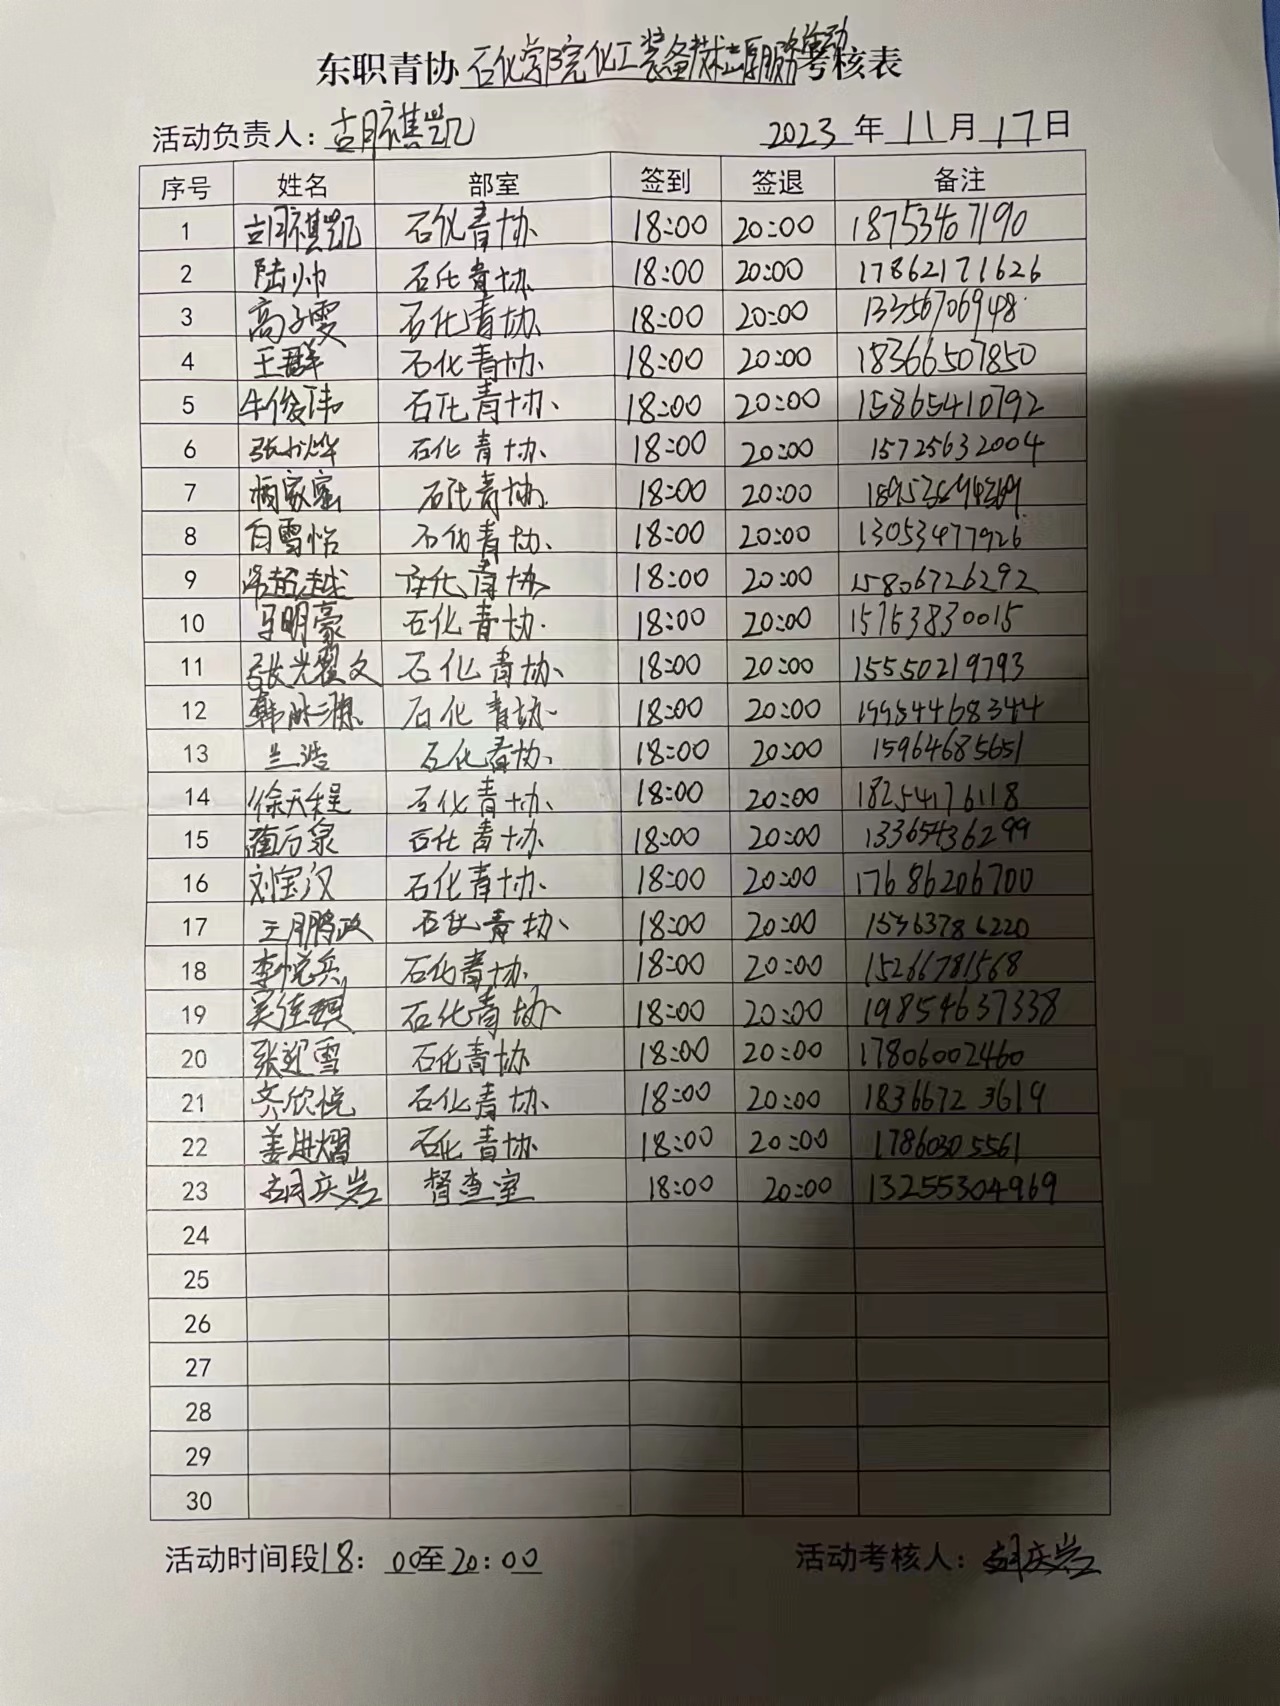 东职青协石化学院化工装备技术志愿服务活动考核表
活动负责人：胡祺凯 2023年11月17日
序号 姓名 部室 签到 签退 备注
1 胡祺凯 石化青协 18:00 20:00 18753467190
2 陆帅 石化青协 18:00 20:00 17862171626
3 高子雯 石化青协 18:00 20:00 13356706948
4 王群 石化青协 18:00 20:00 18366507850
5 牛俊伟 石化青协 18:00 20:00 15865410792
6 张书烨 石化青协 18:00 20:00 15725632004
7 石化青协 18:00 20:00
8 白雪怡 石化青协 18:00 20:00 13053477926
9 常超越 石化青协 18:00 20:00 15806726292
10 马明豪 石化青协 18:00 20:00 15763830015
11 石化青协 18:00 20:00 15550219793
12 石化青协 18:00 20:00 19954468344
13 兰浩 石化青协 18:00 20:00 15964685651
14 徐天程 石化青协 18:00 20:00 18254176118
15 蔺万泉 石化青协 18:00 20:00 13365436299
16 刘宝汉 石化青协 18:00 20:00 17686206700
17 石化青协 18:00 20:00 15563786220
18 李悦兵 石化青协 18:00 20:00 15266781568
19 石化青协 18:00 20:00 19854637338
20 张迎雪 石化青协 18:00 20:00 17806002460
21 齐欣悦 石化青协 18:00 20:00 18366723619
22 姜进熠 石化青协 18:00 20:00 17860305561
23 胡庆岩 督查室 18:00 20:00 13255304969
24
25
26
27
28
29
30
活动时间段18：00至20：00 活动考核人：胡庆岩